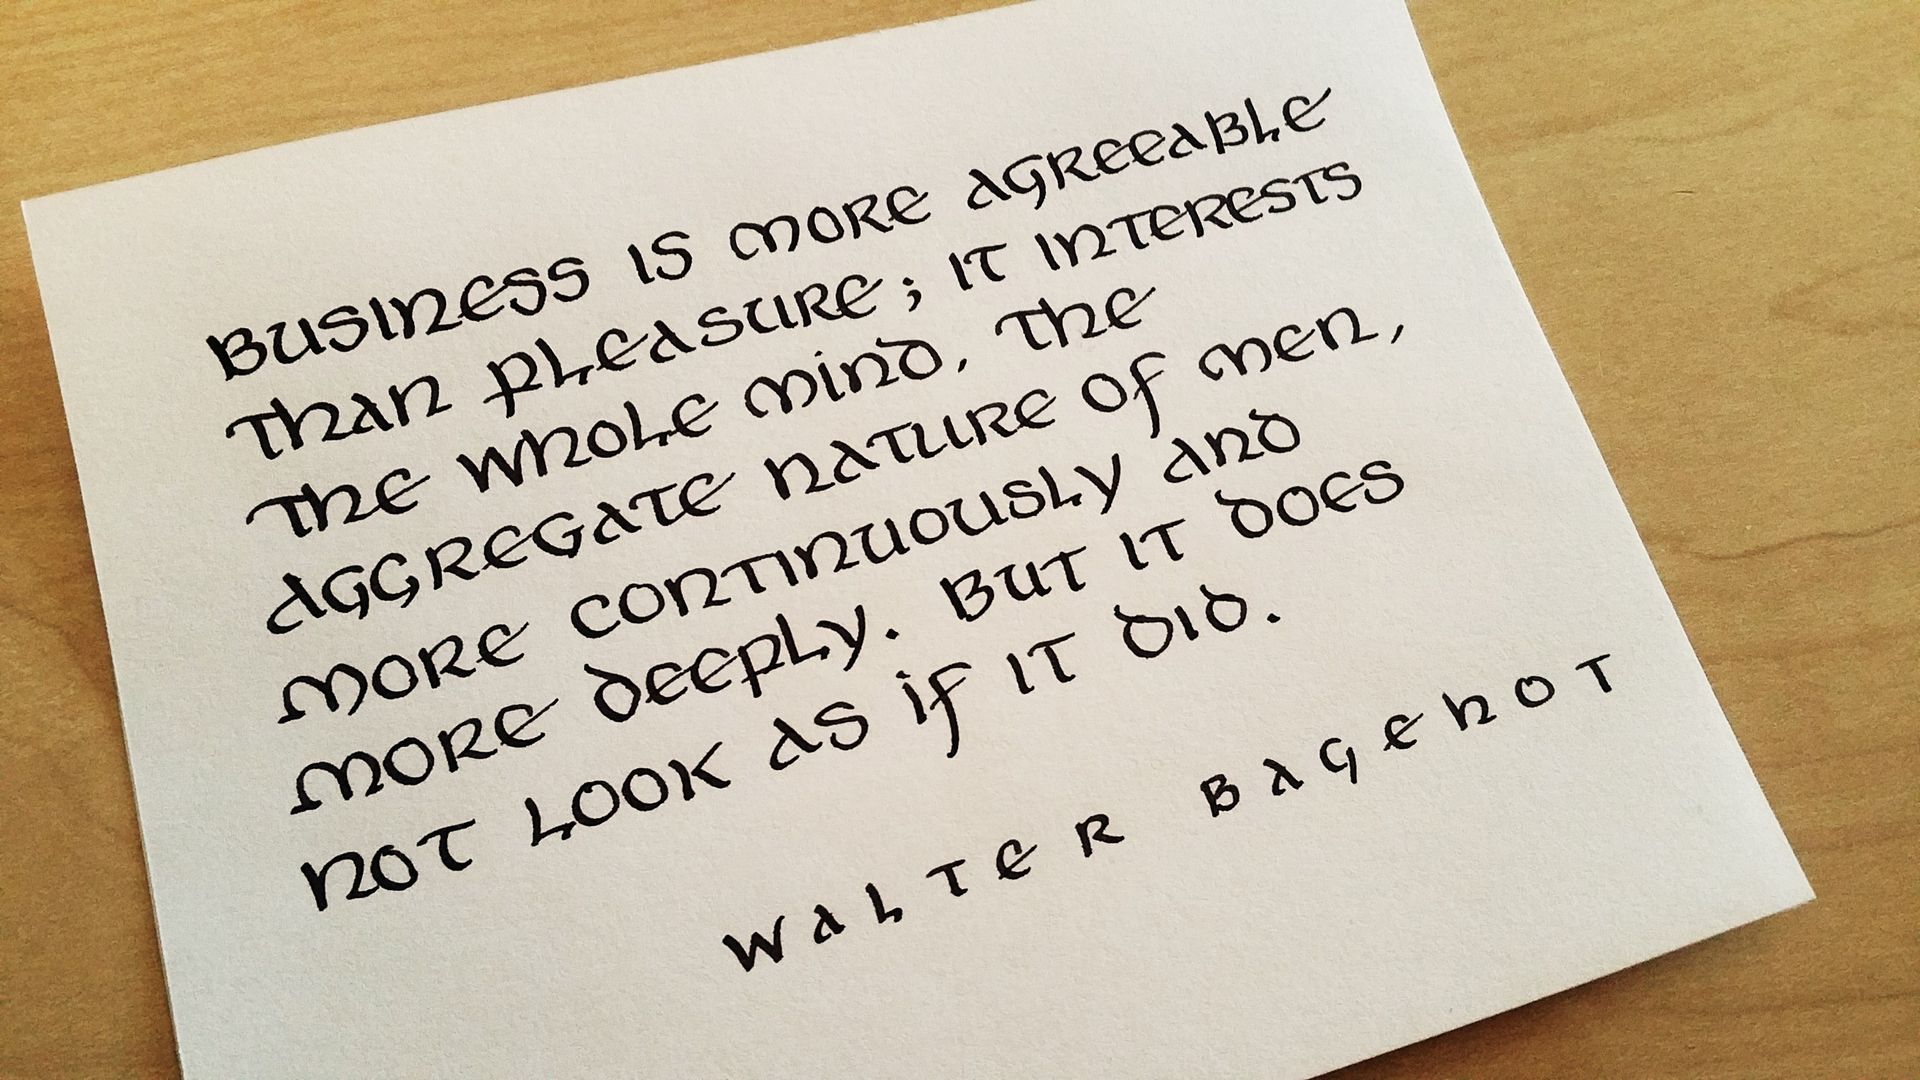 BUSINESS IS MORE AGREEABLE
THAN PLEASURE; IT INTERESTS
THE WHOLE MIND, THE
AGGREGATE NATURE OF MEN,
MORE CONTINUOUSLY AND
MORE DEEPLY. BUT IT DOES
NOT LOOK AS IF IT DID.
WALTER BAGEHOT